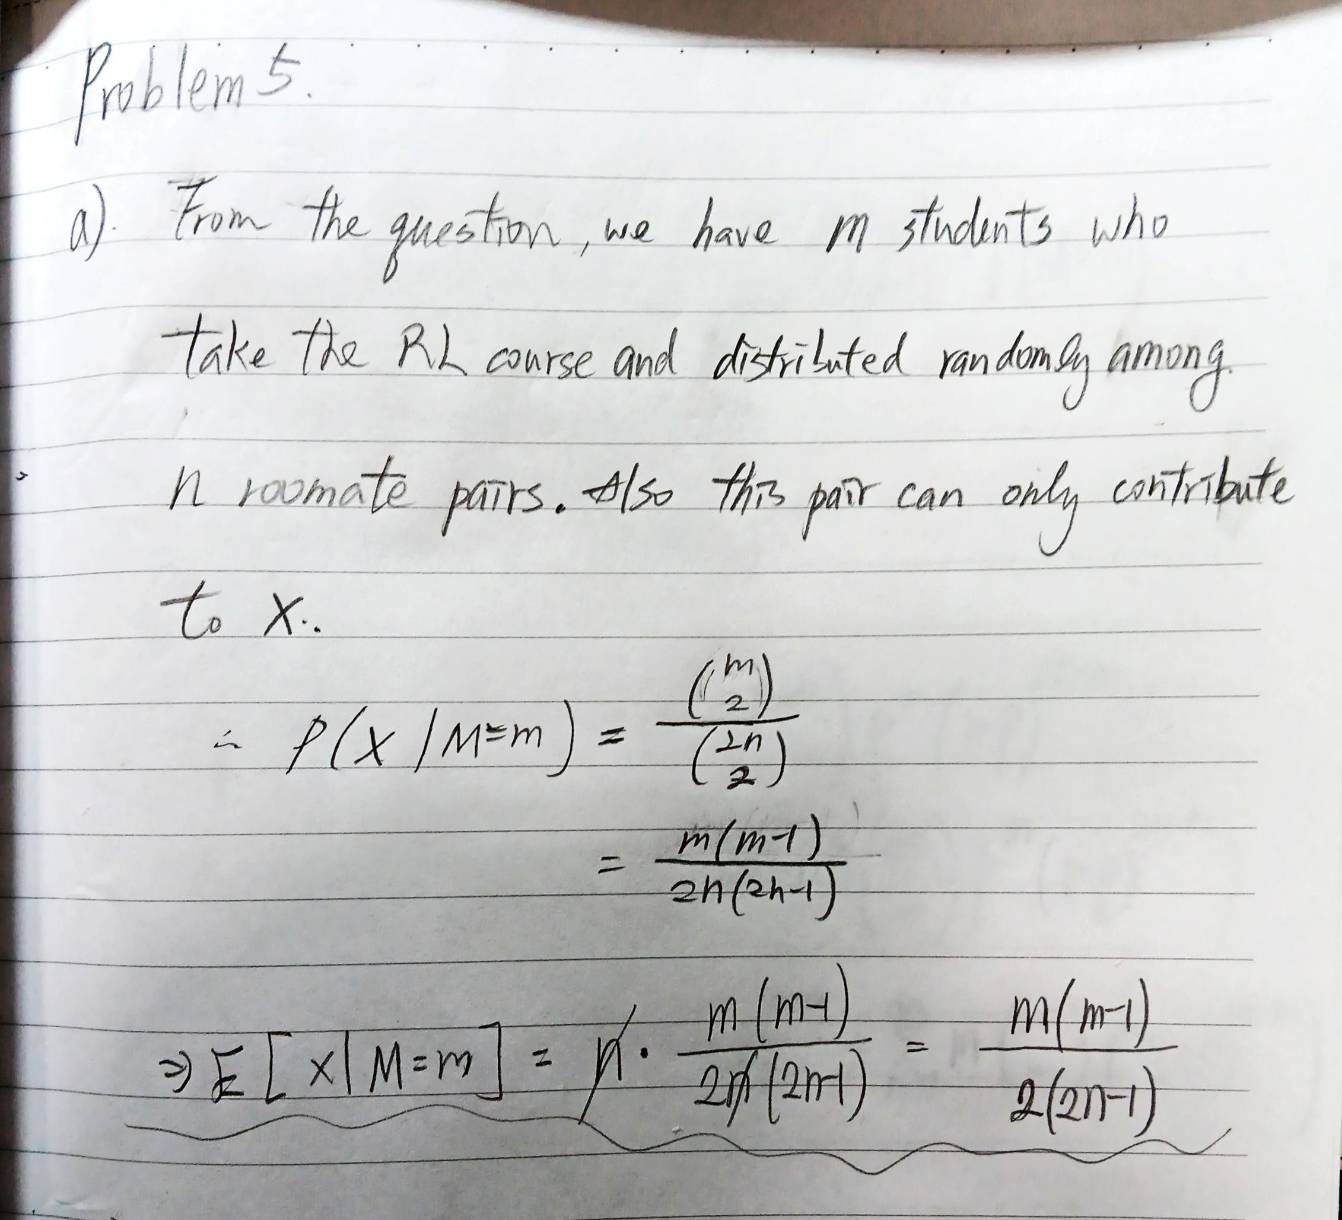 Problem 5.
a). From the question, we have m students who
take the RL course and distributed randomly among
n roomate pairs. Also this pair can only contribute
to X.
∴ P(X | M=m) = \frac{\binom{m}{2}}{\binom{2n}{2}}
= \frac{m(m-1)}{2n(2n-1)}
⇒ E[X | M=m] = n · \frac{m(m-1)}{2n(2n-1)} = \frac{m(m-1)}{2(2n-1)}